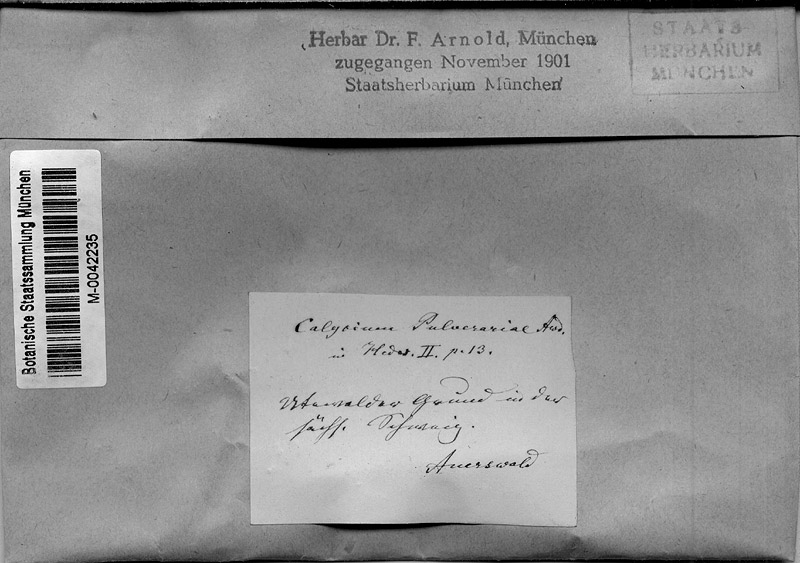 Herbar Dr. F. Arnold, München
zugegangen November 1901
Staatsherbarium München
STAATS-
HERBARIUM
MÜNCHEN
Botanische Staatssammlung München
M-0042235
Calycium Pulverariae Awd.
in Hedw. II. p. 13.
Utewalder Grund in der
sächs. Schweiz.
Auerswald